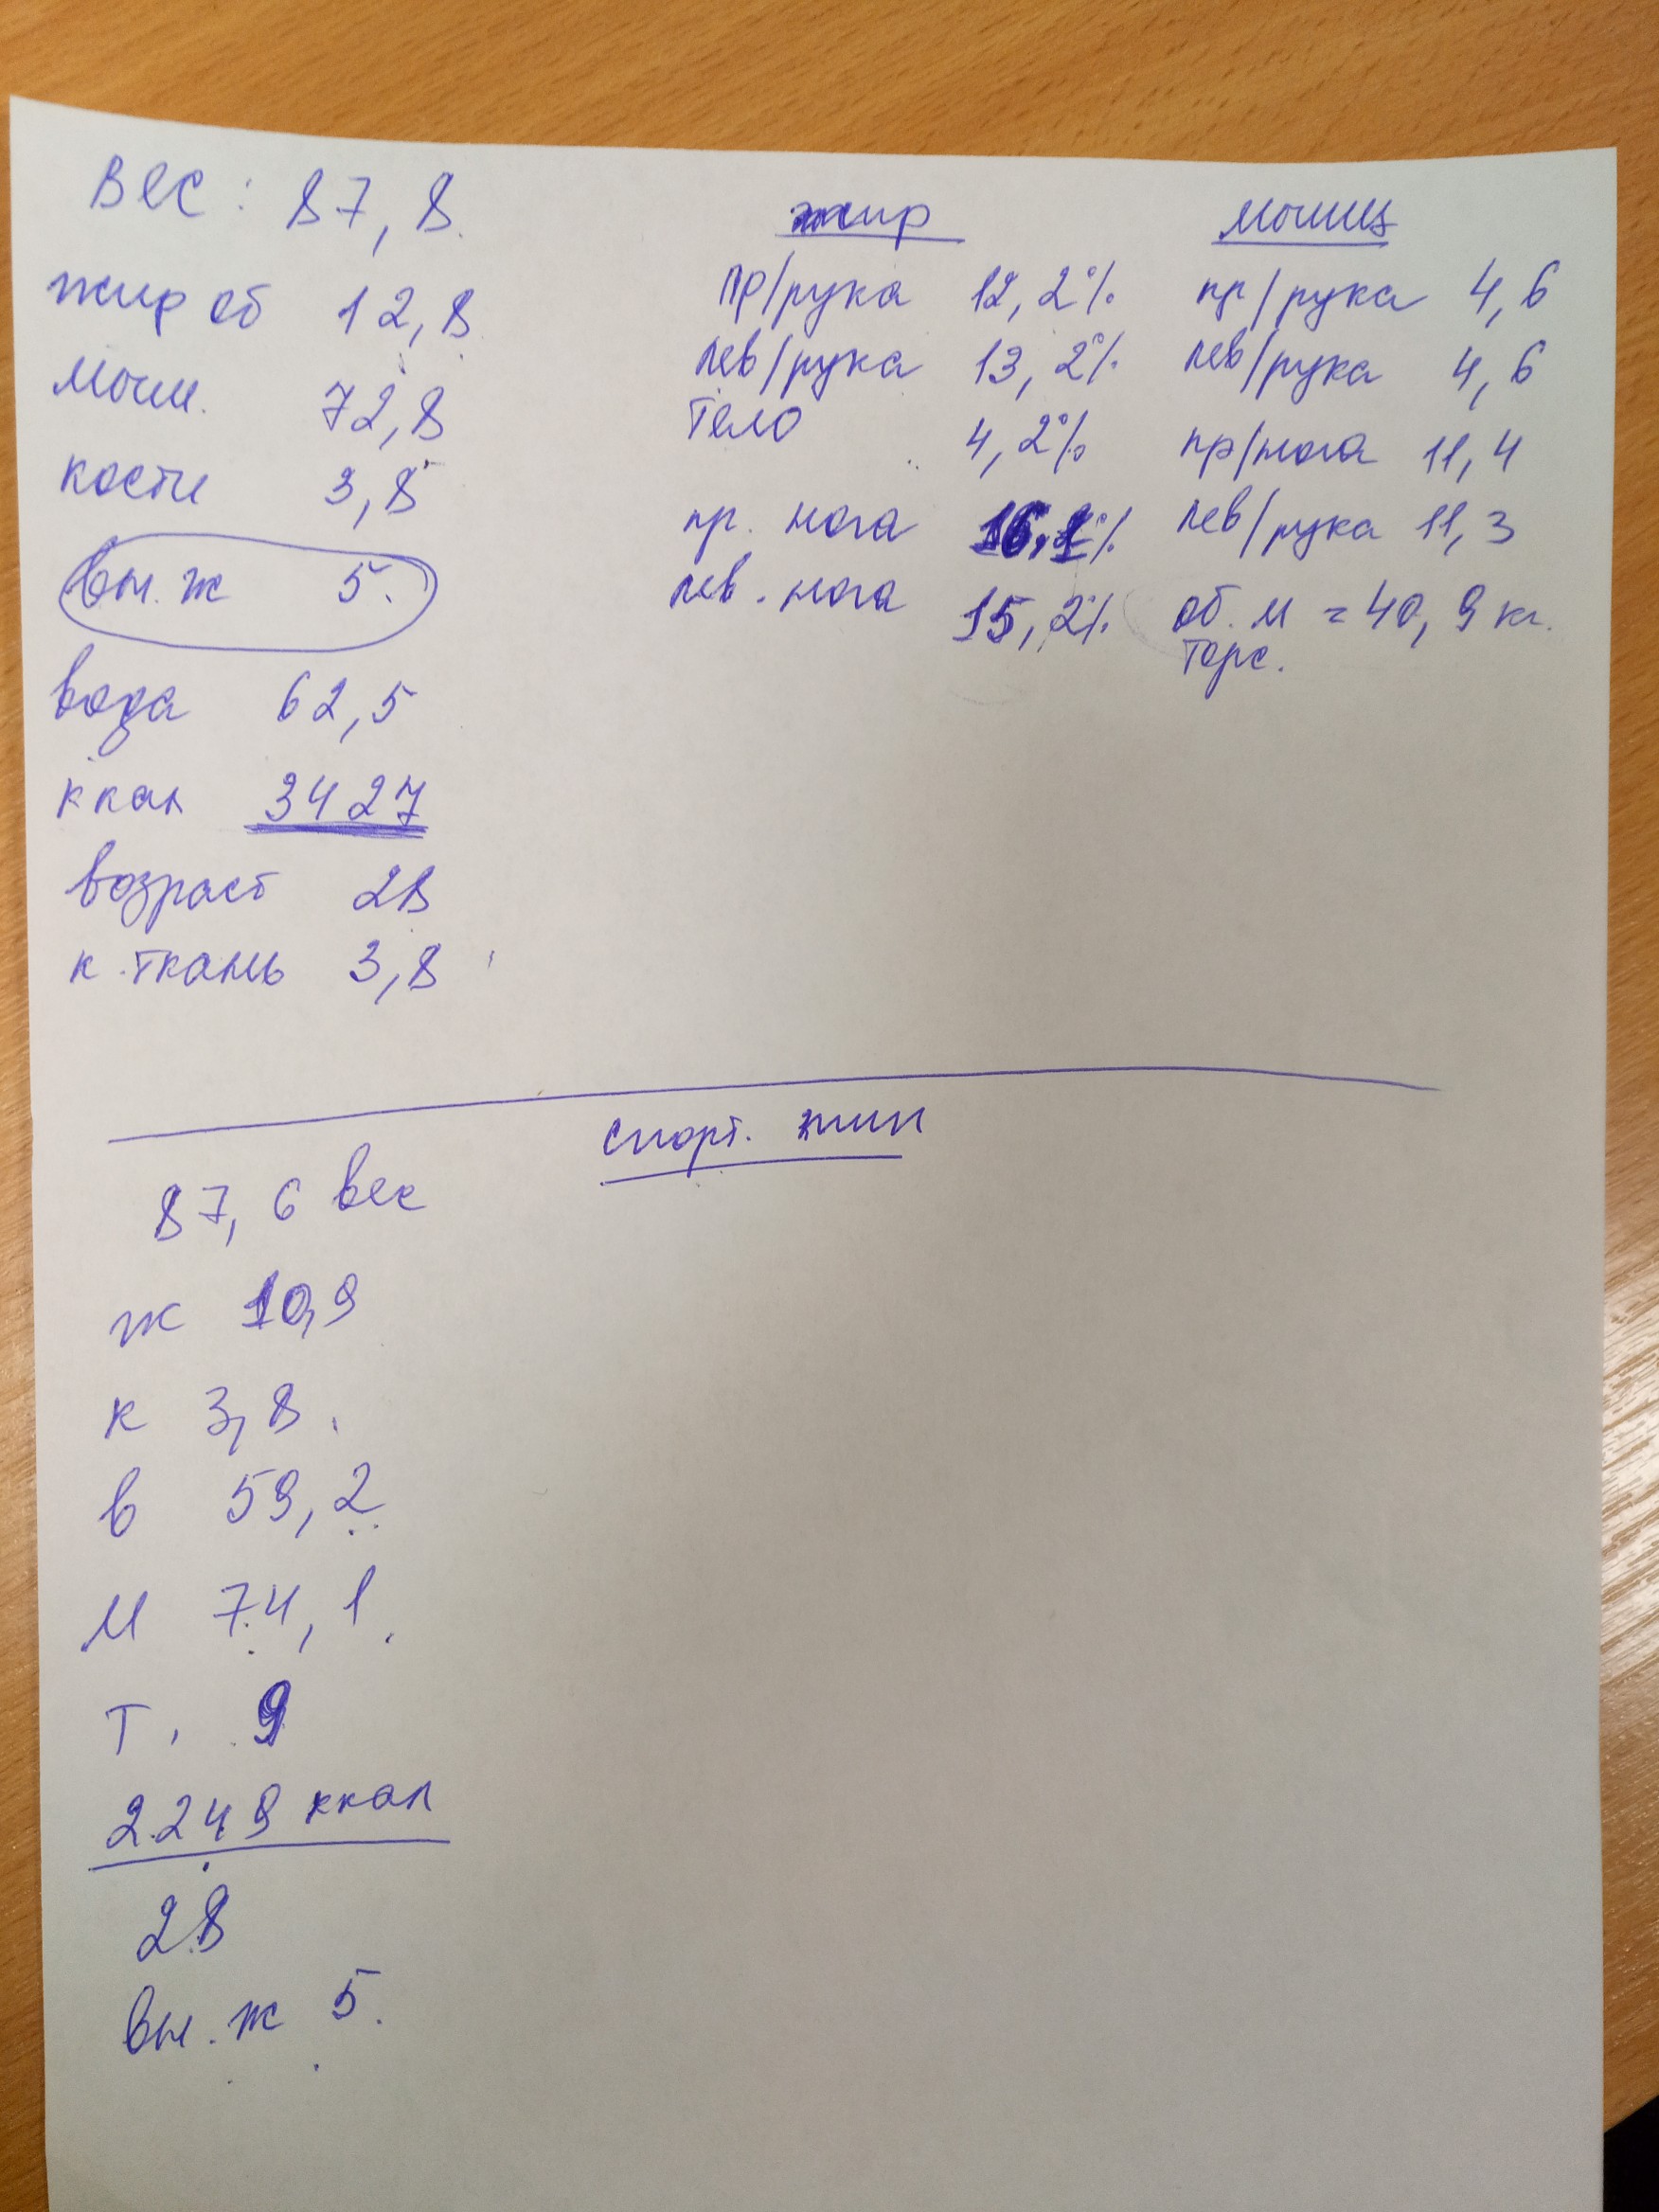 Вес: 87,8
жир об 12,8
мышц. 72,8
кости 3,8
вн. ж 5.
вода 62,5
ккал 3427
возраст 28
к. ткань 3,8
жир
пр/рука 12,2%
лев/рука 13,2%
тело 4,2%
пр. нога 16,1%
лев. нога 15,2%
мышц
пр/рука 4,6
лев/рука 4,6
пр/нога 11,4
лев/рука 11,3
об. м = 40,9 кг.
торс.
спорт. тип
87,6 вес
ж 10,9
к 3,8.
в 59,2
м 74,1.
Т. 9
2249 ккал
28
вн. ж 5.